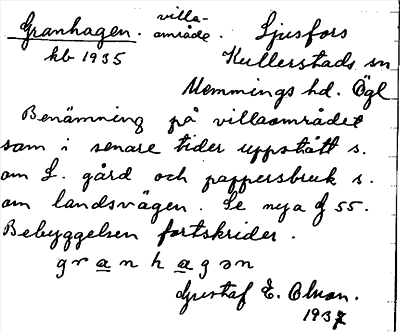 Granhagen. villa-område. Ljusfors
kb 1935 Kullerstads sn
Memmings hd. Ögl
Benämning på villaområdet
som i senare tider uppstått s.
om L. gård och pappersbruk s.
om landsvägen. Se nya G 55.
Bebyggelsen fortskrider.
granhagən
Gustaf E. Olson.
1937